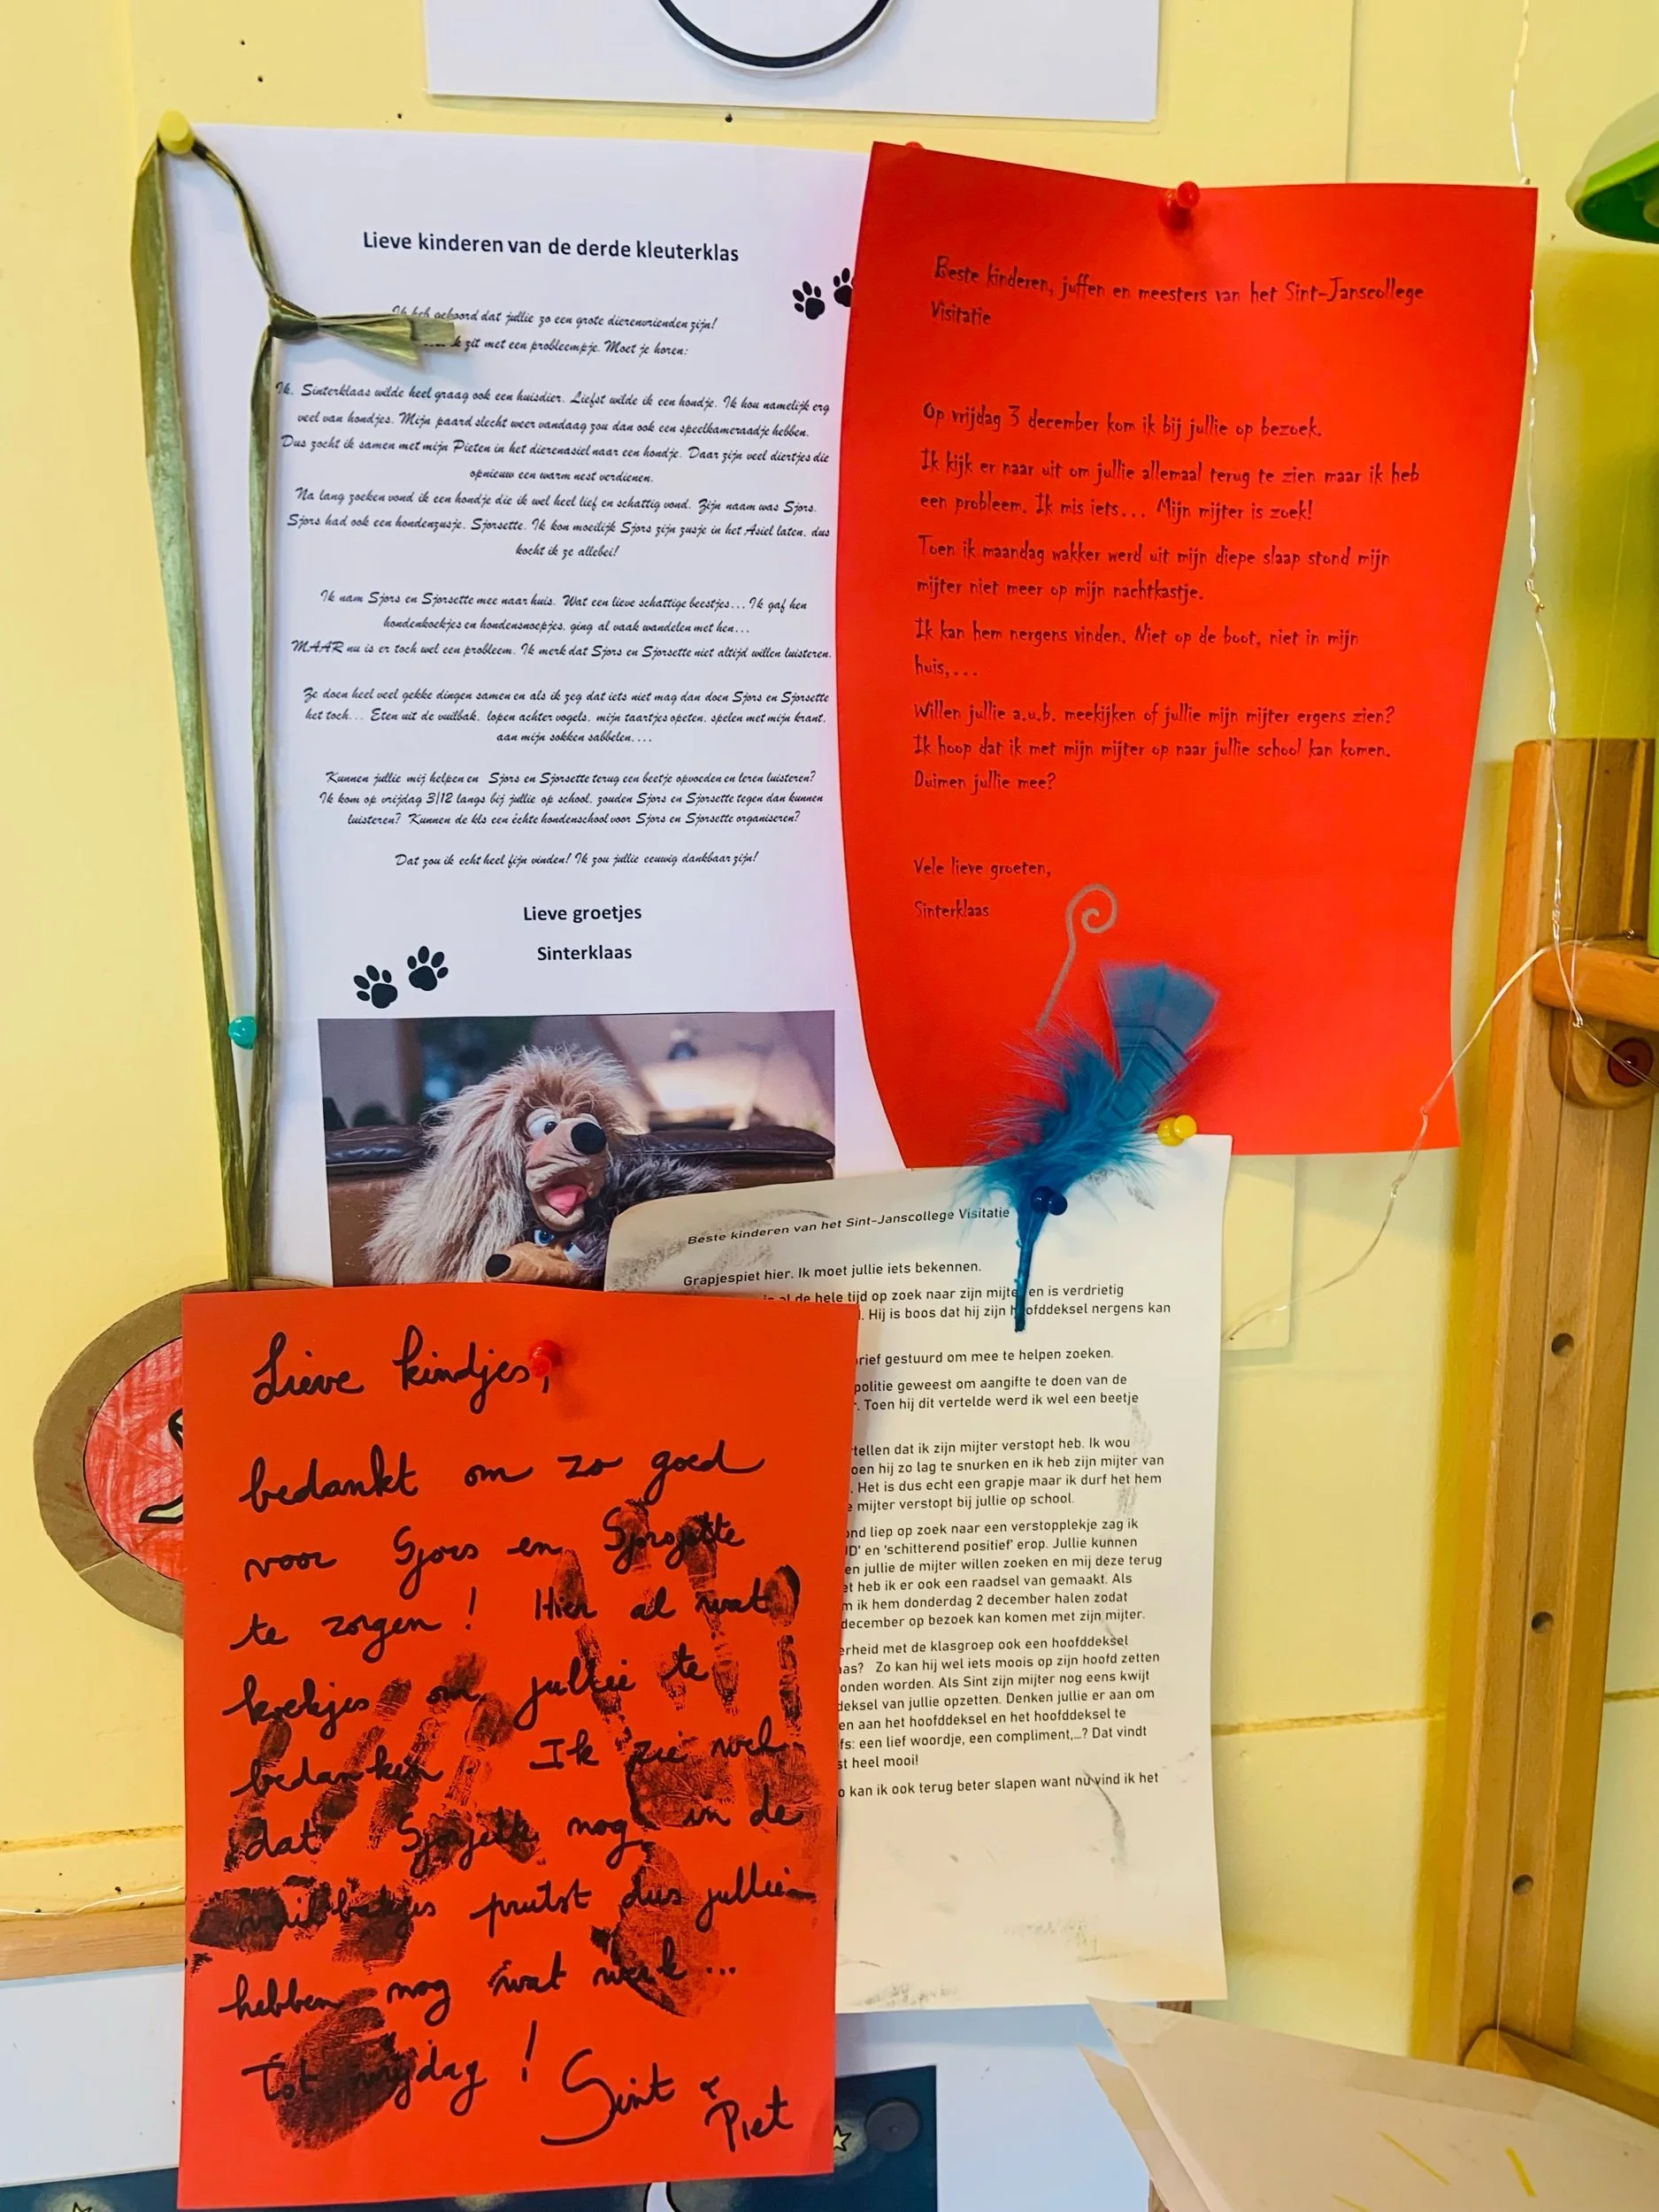 Lieve kinderen van de derde kleuterklas
Ik heb gehoord dat jullie zo een grote dierenvrienden zijn!
ik zit met een probleempje. Moet je horen:
Ik, Sinterklaas wilde heel graag ook een huisdier. Liefst wilde ik een hondje. Ik hou namelijk erg
veel van hondjes. Mijn paard slecht weer vandaag zou dan ook een speelkameraadje hebben.
Dus zocht ik samen met mijn Pieten in het dierenasiel naar een hondje. Daar zijn veel diertjes die
opnieuw een warm nest verdienen.
Na lang zoeken vond ik een hondje die ik wel heel lief en schattig vond. Zijn naam was Sjors.
Sjors had ook een hondenzusje, Sjorsette. Ik kon moeilijk Sjors zijn zusje in het Asiel laten, dus
kocht ik ze allebei!
Ik nam Sjors en Sjorsette mee naar huis. Wat een lieve schattige beestjes... Ik gaf hen
hondenkoekjes en hondensnoepjes, ging al vaak wandelen met hen...
MAAR nu is er toch wel een probleem. Ik merk dat Sjors en Sjorsette niet altijd willen luisteren.
Ze doen heel veel gekke dingen samen en als ik zeg dat iets niet mag dan doen Sjors en Sjorsette
het toch... Eten uit de vuilbak, lopen achter vogels, mijn taartjes opeten, spelen met mijn krant,
aan mijn sokken sabbelen....
Kunnen jullie mij helpen en Sjors en Sjorsette terug een beetje opvoeden en leren luisteren?
Ik kom op vrijdag 3/12 langs bij jullie op school, zouden Sjors en Sjorsette tegen dan kunnen
luisteren? Kunnen de kls een échte hondenschool voor Sjors en Sjorsette organiseren?
Dat zou ik echt heel fijn vinden! Ik zou jullie eeuwig dankbaar zijn!
Lieve groetjes
Sinterklaas
Beste kinderen, juffen en meesters van het Sint-Janscollege
Visitatie
Op vrijdag 3 december kom ik bij jullie op bezoek.
Ik kijk er naar uit om jullie allemaal terug te zien maar ik heb
een probleem. Ik mis iets... Mijn mijter is zoek!
Toen ik maandag wakker werd uit mijn diepe slaap stond mijn
mijter niet meer op mijn nachtkastje.
Ik kan hem nergens vinden. Niet op de boot, niet in mijn
huis,...
Willen jullie a.u.b. meekijken of jullie mijn mijter ergens zien?
Ik hoop dat ik met mijn mijter op naar jullie school kan komen.
Duimen jullie mee?
Vele lieve groeten,
Sinterklaas
Beste kinderen van het Sint-Janscollege Visitatie
Grapjespiet hier. Ik moet jullie iets bekennen.
al de hele tijd op zoek naar zijn mijter en is verdrietig
Hij is boos dat hij zijn hoofddeksel nergens kan
brief gestuurd om mee te helpen zoeken.
politie geweest om aangifte te doen van de
Toen hij dit vertelde werd ik wel een beetje
dat ik zijn mijter verstopt heb. Ik wou
hij zo lag te snurken en ik heb zijn mijter van
Het is dus echt een grapje maar ik durf het hem
mijter verstopt bij jullie op school.
liep op zoek naar een verstopplekje zag ik
en 'schitterend positief' erop. Jullie kunnen
en jullie de mijter willen zoeken en mij deze terug
heb ik er ook een raadsel van gemaakt. Als
ik hem donderdag 2 december halen zodat
december op bezoek kan komen met zijn mijter.
met de klasgroep ook een hoofddeksel
Zo kan hij wel iets moois op zijn hoofd zetten
worden. Als Sint zijn mijter nog eens kwijt
van jullie opzetten. Denken jullie er aan om
en aan het hoofddeksel en het hoofddeksel te
een lief woordje, een compliment,…? Dat vindt
heel mooi!
kan ik ook terug beter slapen want nu vind ik het
Lieve kindjes,
bedankt om zo goed
voor Sjors en Sjorsjette
te zorgen! Hier al wat
koekjes om jullie te
bedanken. Ik zie wel
dat Sjorjette nog in de
vuilbakjes prutst dus jullie
hebben nog wat werk...
Tot vrijdag!
Sint &
Piet